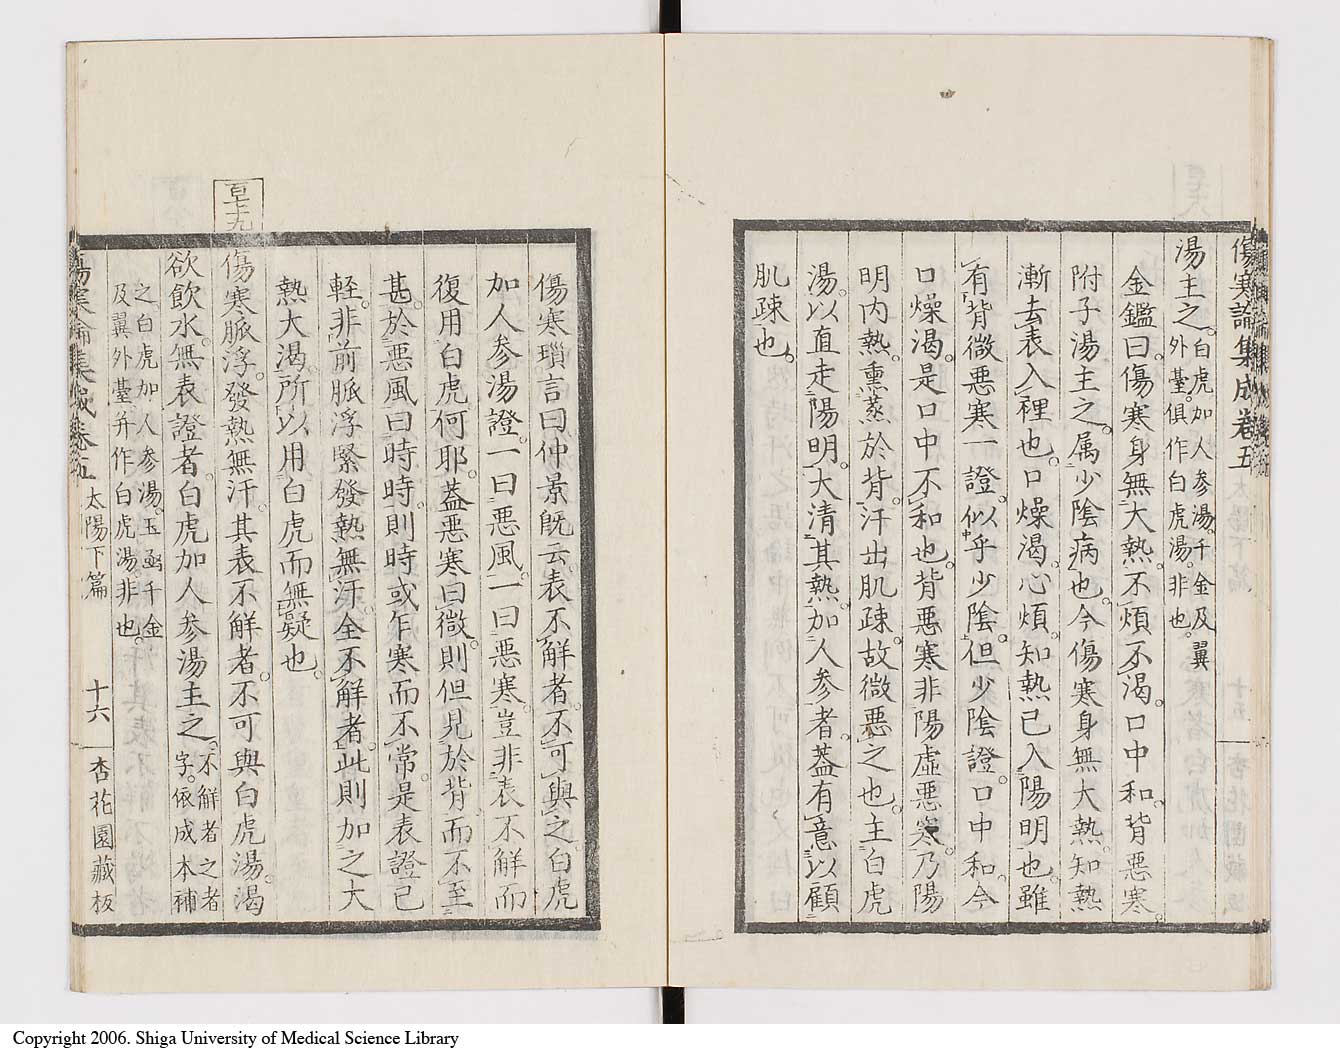 傷寒論集成卷五
湯主之。白虎加人参湯。千金及翼
外臺。俱作白虎湯。非也。
金鑑曰。傷寒身無大熱。不煩不渴。口中和。背惡寒。
附子湯主之。属少陰病也。今傷寒身無大熱。知熱
漸去表入裡也。口燥渴。心煩。知熱已入陽明也。雖
有背微惡寒一證。似乎少陰。但少陰證。口中和。今
口燥渴。是口中不和也。背惡寒非陽虛惡寒。乃陽
明内熱。熏蒸於背。汗出肌疎。故微惡之也。主白虎
湯。以直走陽明。大清其熱。加人参者。蓋有意以顧
肌疎也。
傷寒瑣言曰。仲景旣云。表不解者。不可與之白虎
加人参湯證。一曰惡風。一曰惡寒。豈非表不解而
復用白虎何耶。蓋惡寒曰微。則但見於背。而不至
甚。於惡風曰時時。則時或乍寒而不常。是表證已
輕。非前脈浮緊發熱無汗。全不解者。此則加之大
熱大渴。所以用白虎而無疑也。
傷寒脈浮。發熱無汗。其表不解者。不可與白虎湯。渴
欲飲水。無表證者。白虎加人参湯主之。不解者之者
字。依成本補
之。白虎加人参湯。玉凾千金
及翼外臺。并作白虎湯。非也。
傷寒論集成卷五
太陽下篇
十六
杏花園藏板